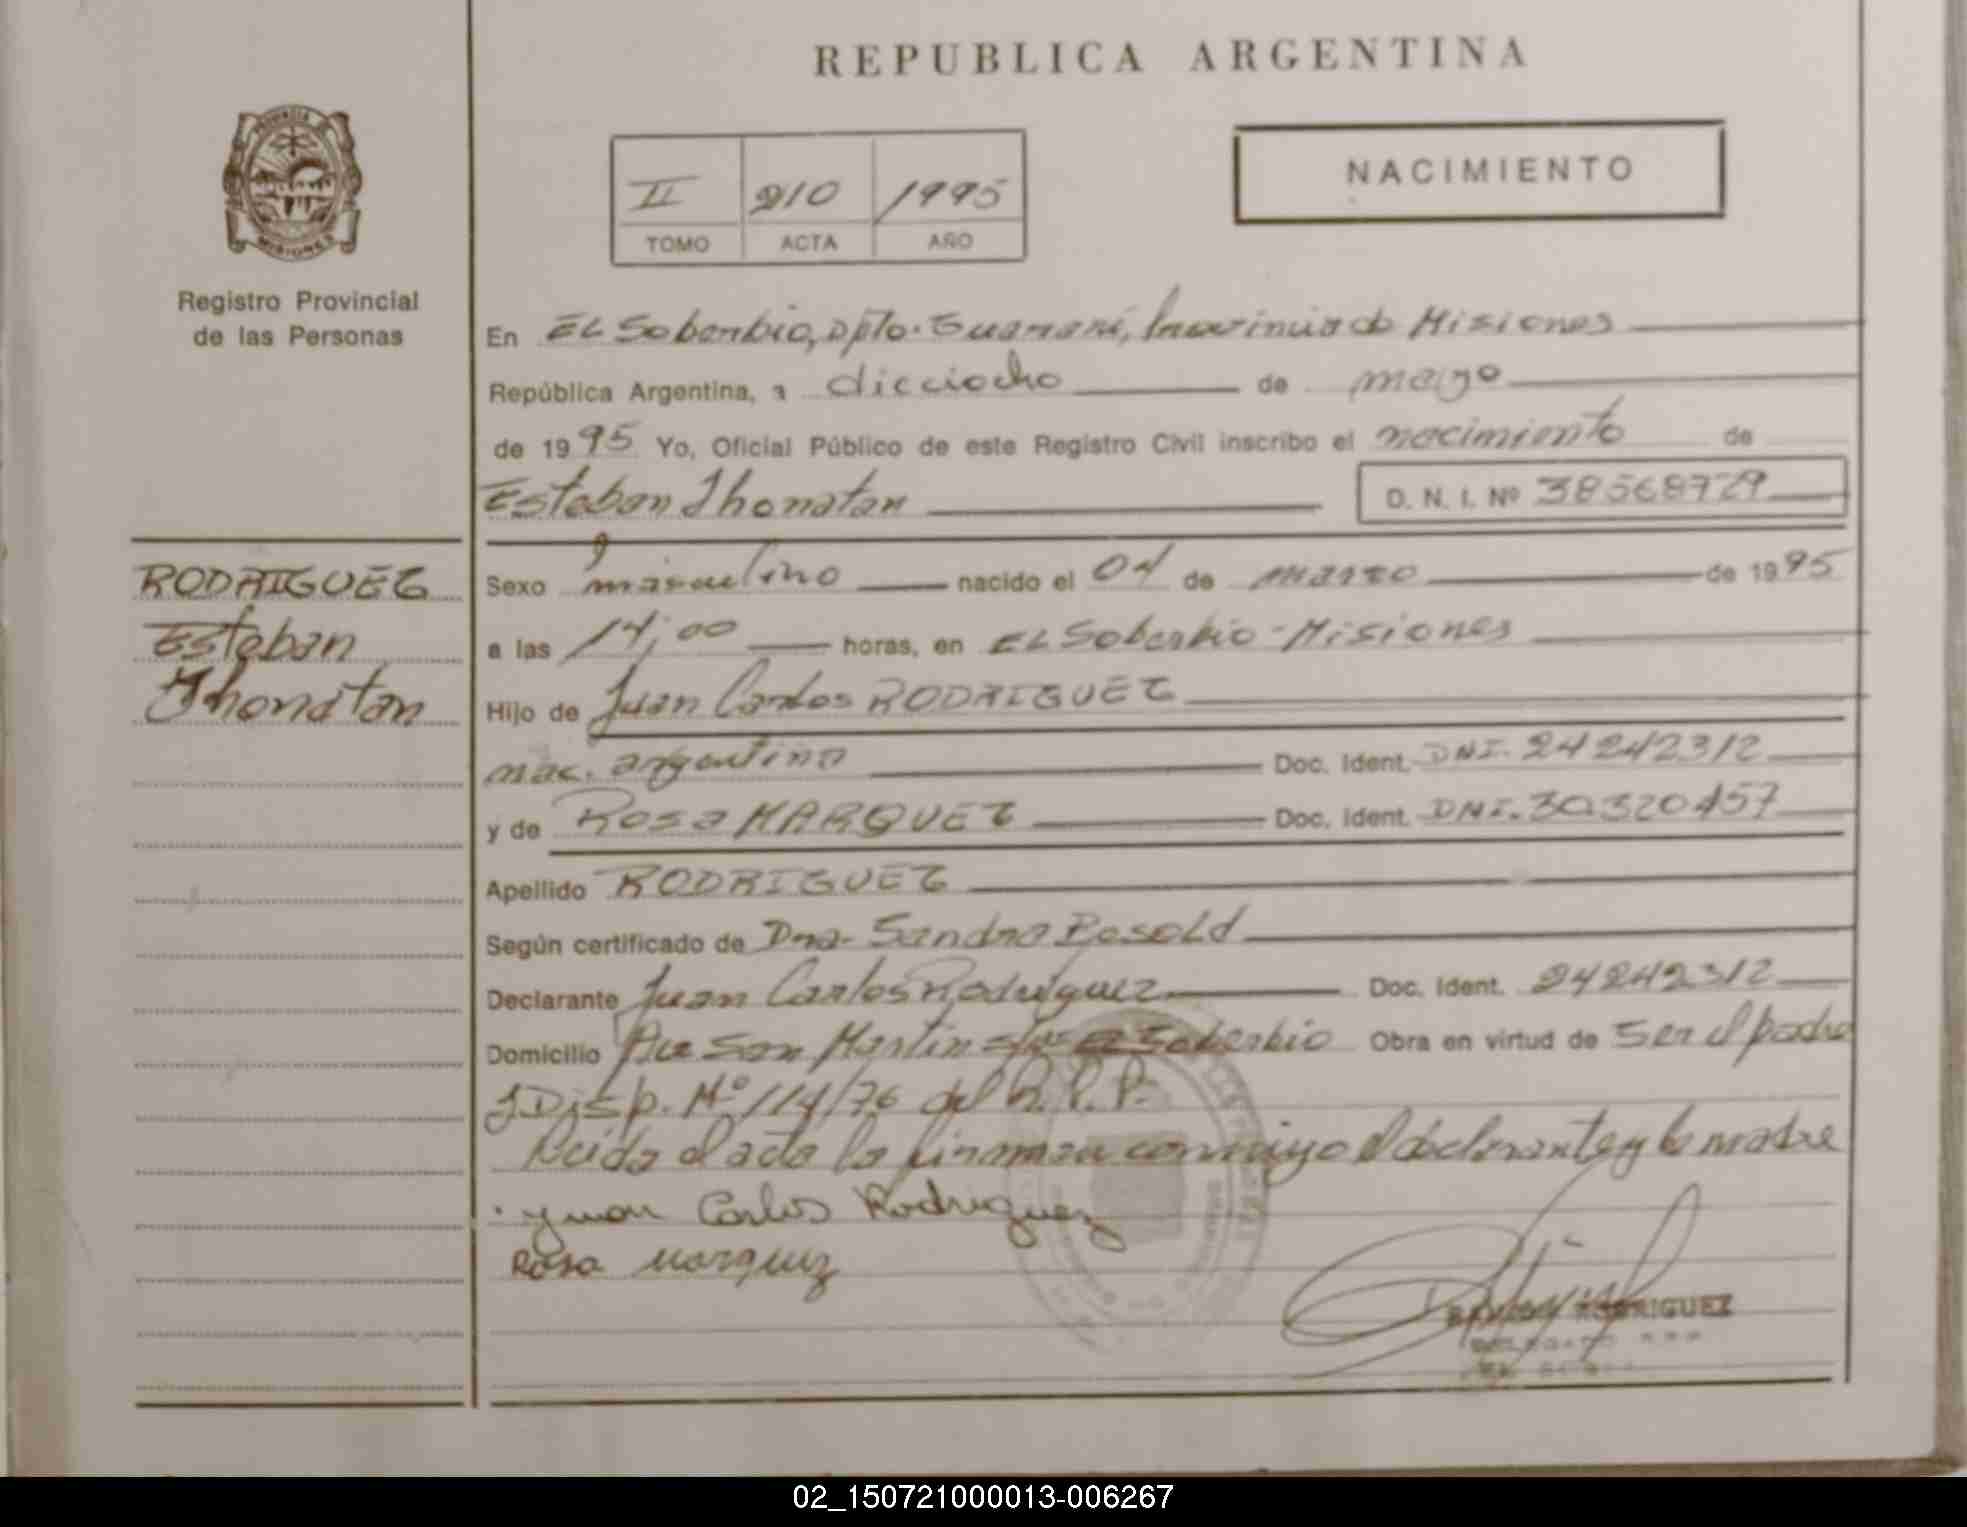 REPUBLICA ARGENTINA
PROVINCIA DE
MISIONES
Registro Provincial
de las Personas
II 210 1995
TOMO ACTA AÑO
NACIMIENTO
En EL Soberbio, Dpto. Guaraní, Provincia de Misiones
República Argentina, a dieciocho de mayo
de 1995 Yo, Oficial Público de este Registro Civil inscribo el nacimiento de
Esteban Jhonatan D. N. I. Nº 38568729
RODRIGUEZ
Esteban
Jhonatan
Sexo masculino nacido el 04 de marzo de 1995
a las 14,00 horas, en EL Soberbio - Misiones
Hijo de Juan Carlos RODRIGUEZ
nac. argentina Doc. Ident. DNI. 24242312
y de Rosa MARQUEZ Doc. Ident. DNI. 30320457
Apellido RODRIGUEZ
Según certificado de Dra. Sandra Bosold
Declarante Juan Carlos Rodriguez Doc. Ident. 24242312
Domicilio Av San Martin Soberbio Obra en virtud de ser el padre
Disp. Nº 114/76 del R.P.P.
Leida el acta la firman conmigo el declarante y la madre
Carlos Rodriguez
Rosa Marquez
RODRIGUEZ
02_150721000013-006267